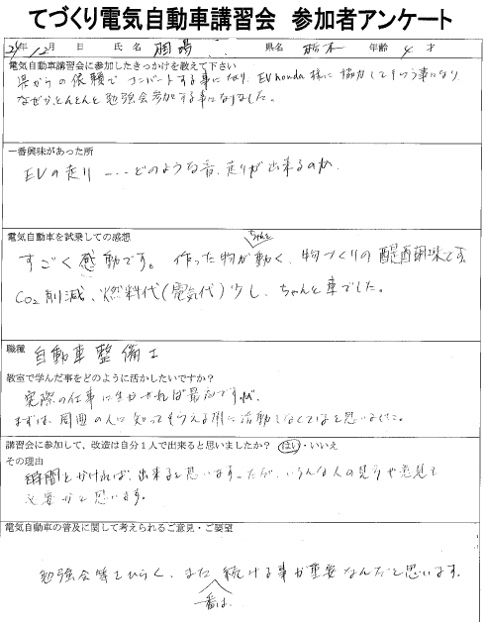 てづくり電気自動車講習会 参加者アンケート
24年12月 日 氏名 県名 栃木 年齢 才
電気自動車講習会に参加したきっかけを教えて下さい
県からの依頼で コンバートする事になり、EV honda 様に協力してもらう事になり
なぜか、とんとんと勉強会参加する事になりました。
一番興味があった所
EVの走り ---どのような音、走りが出来るのか。
電気自動車を試乗しての感想
ちゃんと
すごく感動です。作った物が動く、物づくりの醍醐味です。
CO2削減、燃料代(電気代)少し、ちゃんと車でした。
職種 自動車整備士
教室で学んだ事をどのように活かしたいですか?
実際の仕事に生かせれば最高ですが、
まずは、周囲の人に知ってもらえる様に活動しなくてはと思いました。
講習会に参加して、改造は自分1人で出来ると思いましたか? はい・いいえ
その理由
時間をかければ、出来ると思います。ただ、いろんな人の見方や意見も
必要かと思います。
電気自動車の普及に関して考えられるご意見・ご要望
勉強会等をひらく、また 続ける事が重要なんだと思います。
一番は